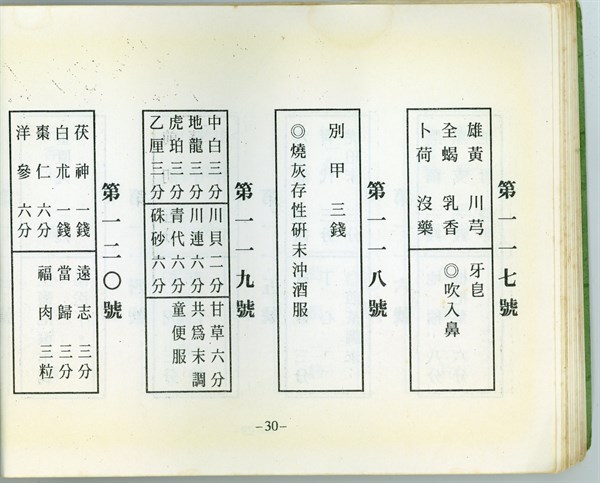 第一一七號
雄黃 川芎 牙皂
全蝎 乳香 ◎吹入鼻
卜荷 沒藥
第一一八號
別甲 三錢
◎燒灰存性研末沖酒服
第一一九號
中白三分 川貝二分 甘草六分
地龍三分 川連六分 共爲末調
虎珀三分 青代六分 童便服
乙厘三分 硃砂六分
第一二〇號
茯神一錢 遠志三分
白朮一錢 當歸三分
棗仁六分 福肉三粒
洋參六分
-30-